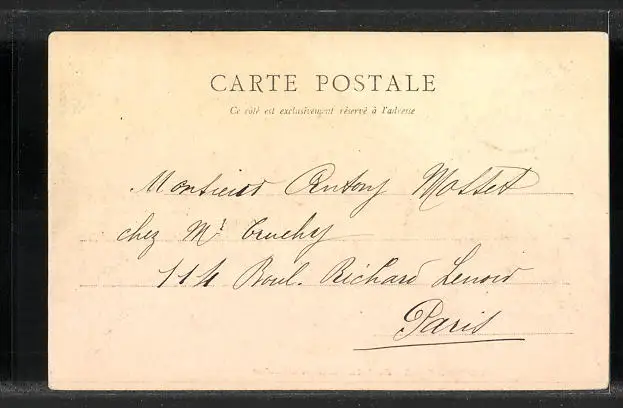 CARTE POSTALE
Ce côté est exclusivement réservé à l'adresse
Monsieur Antony Mosset
chez Mr Cruchy
114 Boul. Richard Lenoir
Paris